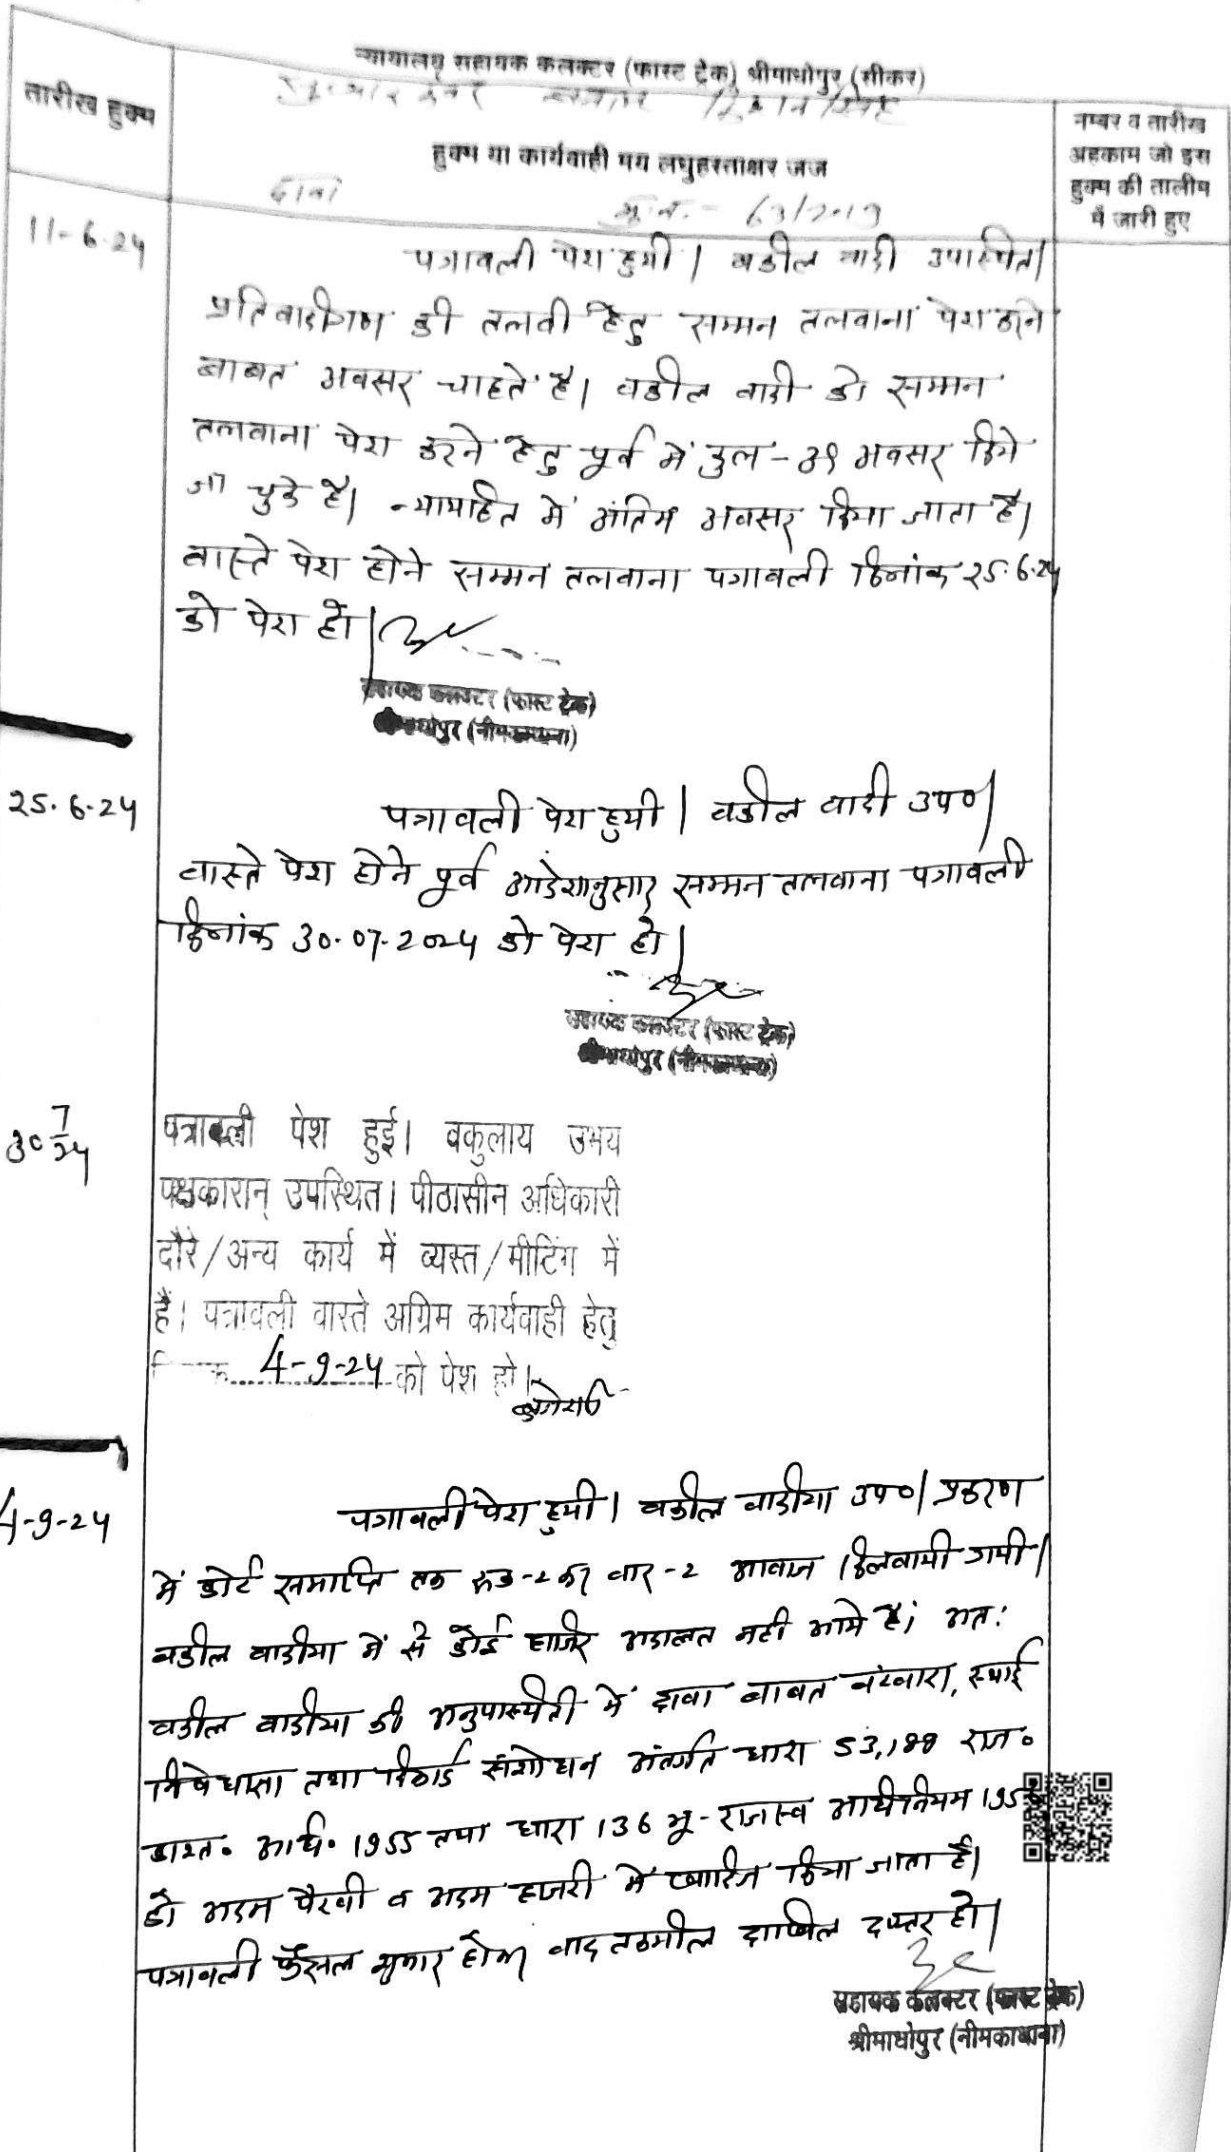 न्यायालय सहायक कलक्टर (फास्ट ट्रेक) श्रीमाधोपुर (सीकर)
तारीख हुक्म
हुक्म या कार्यवाही मय लघुहस्ताक्षर जज
नम्बर व तारीख
अहकाम जो इस
हुक्म की तालीम
में जारी हुए
दावा
मु.न. - 63/2019
11-6-24
पत्रावली पेश हुयी। वकील वादी उपस्थित।
प्रतिवादीगण की तलवी हेतु सम्मन तलवाना पेश करने
बाबत अवसर चाहते है। वकील वादी को सम्मन
तलवाना पेश करने हेतु पूर्व में कुल - अवसर दिये
जा चुके है। न्यायहित में अंतिम अवसर दिया जाता है।
वास्ते पेश होने सम्मन तलवाना पत्रावली दिनांक 25.6.24
को पेश हो।
सहायक कलक्टर (फास्ट ट्रेक)
श्रीमाधोपुर (नीमकाथाना)
25.6.24
पत्रावली पेश हुयी। वकील वादी उप०।
वास्ते पेश होने पूर्व आदेशानुसार सम्मन तलवाना पत्रावली
दिनांक 30.07.2024 को पेश हो।
सहायक कलक्टर (फास्ट ट्रेक)
श्रीमाधोपुर (नीमकाथाना)
30 7/24
पत्रावली पेश हुई। वकुलाय उभय
पक्षकारान् उपस्थित। पीठासीन अधिकारी
दौरे/अन्य कार्य में व्यस्त/मीटिंग में
हैं। पत्रावली वास्ते अग्रिम कार्यवाही हेतु
4-9-24 को पेश हो।
4-9-24
पत्रावली पेश हुयी। वकील वादीया उप०। प्रकरण
में कोर्ट समाप्ति तक रुक-2 कर वार-2 आवाज दिलवायी गयी।
वकील वादीया में से कोई हाजिर अदालत नही आये है। अत:
वकील वादीया की अनुपास्थिती में दावा बाबत बंटवारा, स्थाई
निषेधाज्ञा तथा रिकार्ड संशोधन अंतर्गत धारा 53,188 राज०
काश्त० अधि० 1955 तथा धारा 136 भू-राजस्व अधिनियम 1956
को अदम पैरवी व अदम हाजरी में खारिज किया जाता है।
पत्रावली फैसल शुमार होकर बाद तकमील दाखिल दफ्तर हो।
सहायक कलक्टर (फास्ट ट्रेक)
श्रीमाधोपुर (नीमकाथाना)